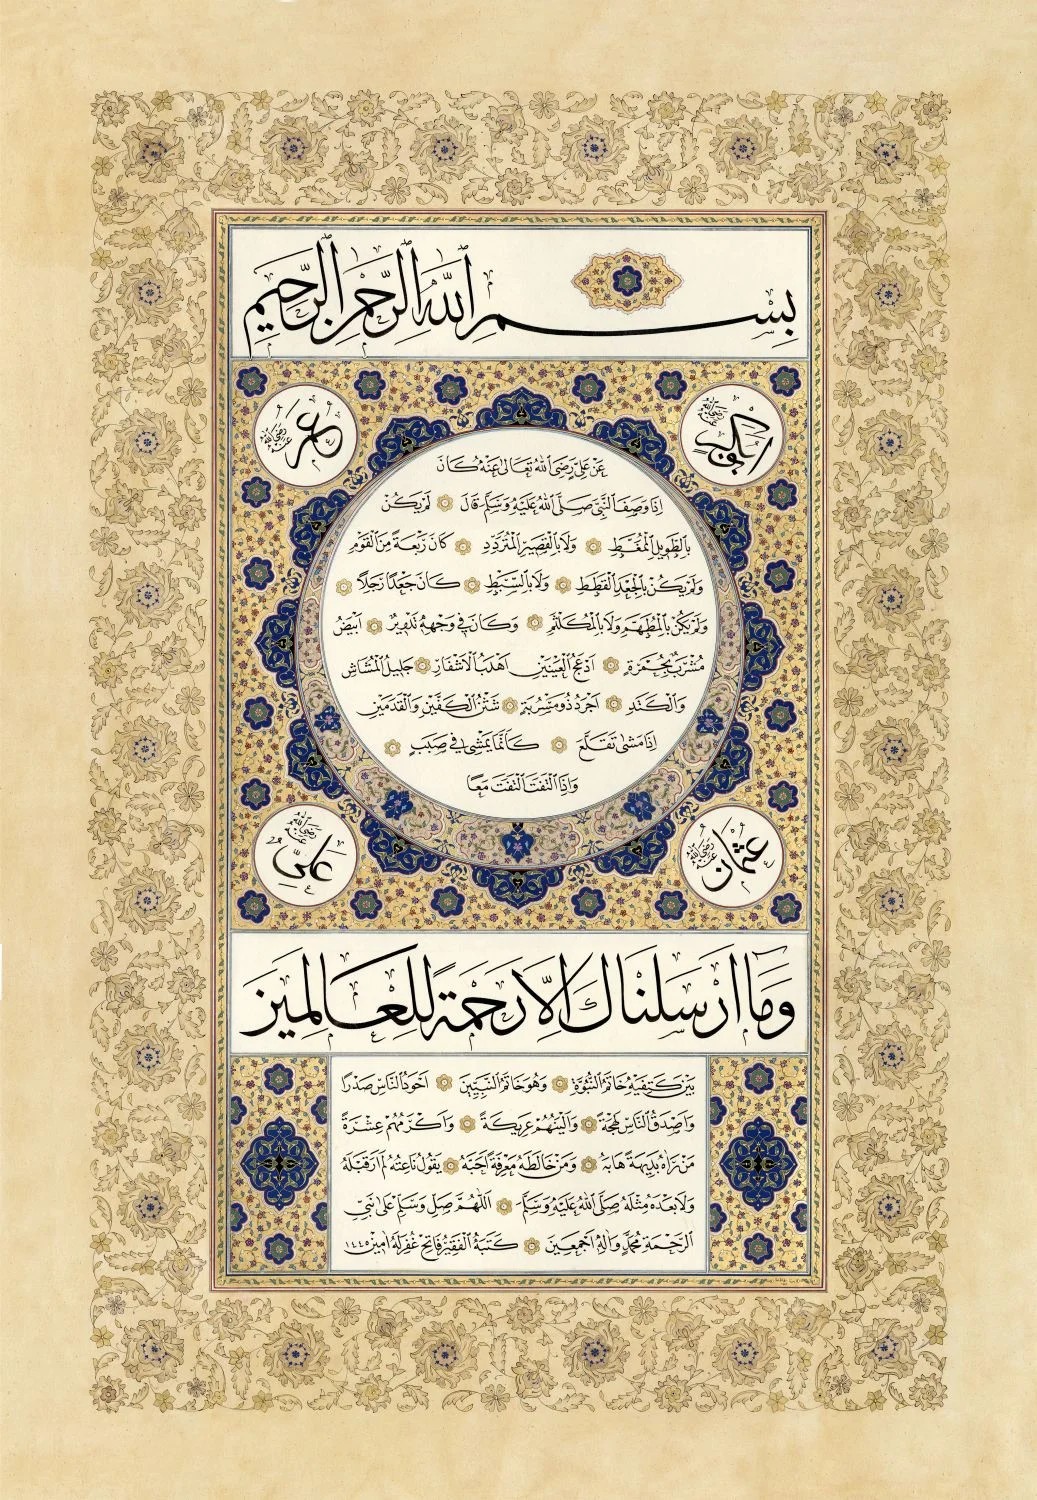 بِسْمِ اللّٰهِ الرَّحْمٰنِ الرَّحِيمِ
ابوبكر رضي الله عنه
عمر رضي الله عنه
عَنْ عَلِيٍّ رَضِيَ اللّٰهُ تَعَالٰى عَنْهُ كَانَ
اِذَا وَصَفَ النَّبِيَّ صَلَّى اللّٰهُ عَلَيْهِ وَسَلَّمَ قَالَ لَمْ يَكُنْ
بِالطَّوِيلِ الْمُمَّغِطِ وَلَا بِالْقَصِيرِ الْمُتَرَدِّدِ كَانَ رَبْعَةً مِنَ الْقَوْمِ
وَلَمْ يَكُنْ بِالْجَعْدِ الْقَطِطِ وَلَا بِالسَّبِطِ كَانَ جَعْدًا رَجِلًا
وَلَمْ يَكُنْ بِالْمُطَهَّمِ وَلَا بِالْمُكَلْثَمِ وَكَانَ فِي وَجْهِهِ تَدْوِيرٌ اَبْيَضُ
مُشْرَبٌ بِحُمْرَةٍ اَدْعَجُ الْعَيْنَيْنِ اَهْدَبُ الْاَشْفَارِ جَلِيلُ الْمُشَاشِ
وَالْكَتَدِ اَجْرَدُ ذُو مَسْرُبَةٍ شَثْنُ الْكَفَّيْنِ وَالْقَدَمَيْنِ
اِذَا مَشٰى تَقَلَّعَ كَاَنَّمَا يَمْشِي فِي صَبَبٍ
وَاِذَا الْتَفَتَ الْتَفَتَ مَعًا
عثمان رضي الله عنه
علي رضي الله عنه
وَمَا اَرْسَلْنَاكَ اِلَّا رَحْمَةً لِلْعَالَمِينَ
بَيْنَ كَتِفَيْهِ خَاتَمُ النُّبُوَّةِ وَهُوَ خَاتَمُ النَّبِيِّينَ اَجْوَدُ النَّاسِ صَدْرًا
وَاَصْدَقُ النَّاسِ لَهْجَةً وَاَلْيَنُهُمْ عَرِيكَةً وَاَكْرَمُهُمْ عِشْرَةً
مَنْ رَاٰهُ بَدِيهَةً هَابَهُ وَمَنْ خَالَطَهُ مَعْرِفَةً اَحَبَّهُ يَقُولُ نَاعِتُهُ لَمْ اَرَ قَبْلَهُ
وَلَا بَعْدَهُ مِثْلَهُ صَلَّى اللّٰهُ عَلَيْهِ وَسَلَّمَ اَللّٰهُمَّ صَلِّ وَسَلِّمْ عَلٰى نَبِيِّ
الرَّحْمَةِ مُحَمَّدٍ وَاٰلِهِ اَجْمَعِينَ كَتَبَهُ الْفَقِيرُ فَاتِح غُفِرَ لَهُ اٰمِين ١٤٤٥